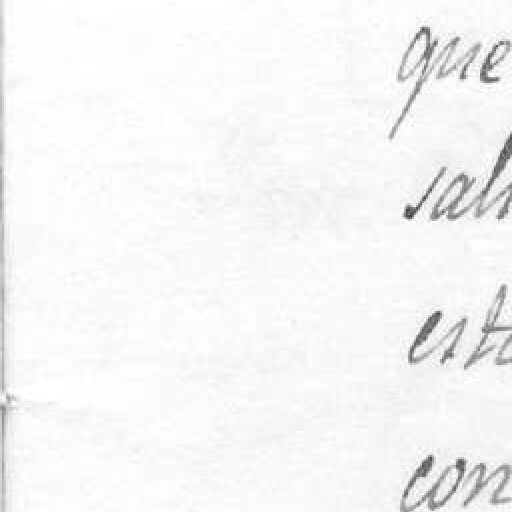 que
sal
esta
con